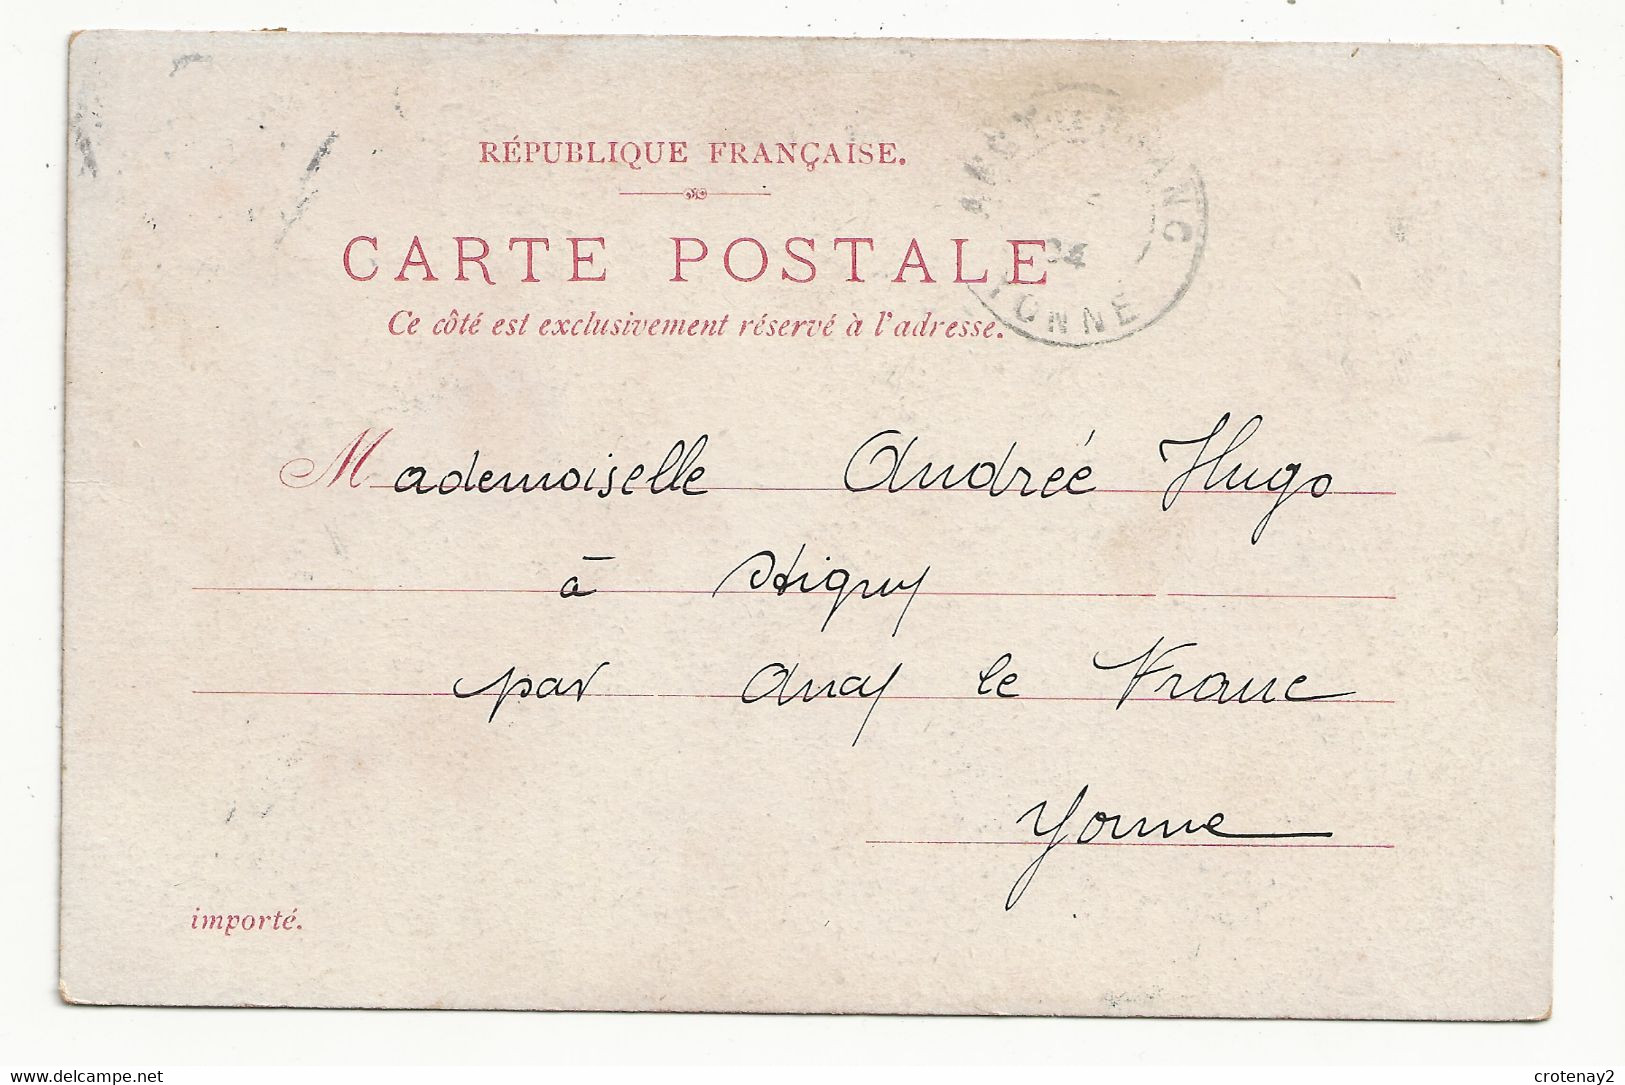 RÉPUBLIQUE FRANÇAISE.
CARTE POSTALE
Ce côté est exclusivement réservé à l'adresse.
YONNE
Mademoiselle Andrée Hugo
à Stigny
par Ancy le Franc
Yonne
importé.
www.delcampe.net
crotenay2